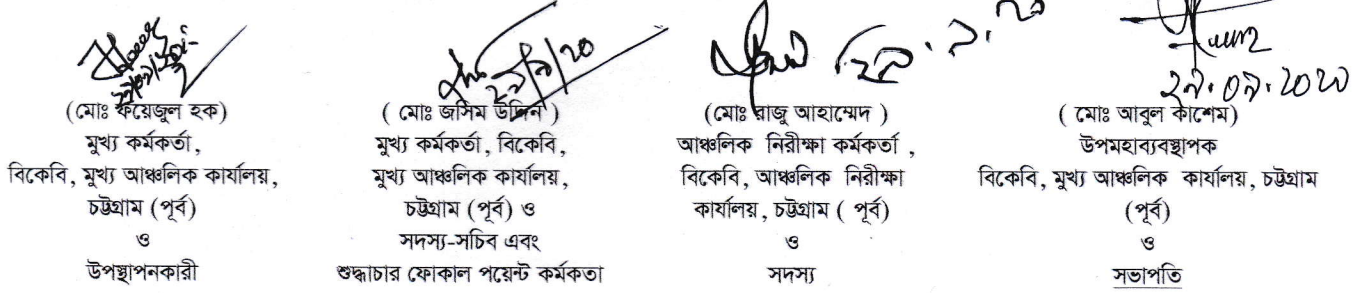 ২৯/৯/২০
২৯.০৯.২০২০
(মোঃ ফয়েজুল হক)
মুখ্য কর্মকর্তা,
বিকেবি, মুখ্য আঞ্চলিক কার্যালয়,
চট্টগ্রাম (পূর্ব)
ও
উপস্থাপনকারী
( মোঃ জসিম উদ্দিন )
মুখ্য কর্মকর্তা, বিকেবি,
মুখ্য আঞ্চলিক কার্যালয়,
চট্টগ্রাম (পূর্ব) ও
সদস্য-সচিব এবং
শুদ্ধাচার ফোকাল পয়েন্ট কর্মকতা
(মোঃ রাজু আহাম্মেদ )
আঞ্চলিক নিরীক্ষা কর্মকর্তা ,
বিকেবি, আঞ্চলিক নিরীক্ষা
কার্যালয়, চট্টগ্রাম ( পূর্ব)
ও
সদস্য
( মোঃ আবুল কাশেম)
উপমহাব্যবস্থাপক
বিকেবি, মুখ্য আঞ্চলিক কার্যালয়, চট্টগ্রাম
(পূর্ব)
ও
সভাপতি